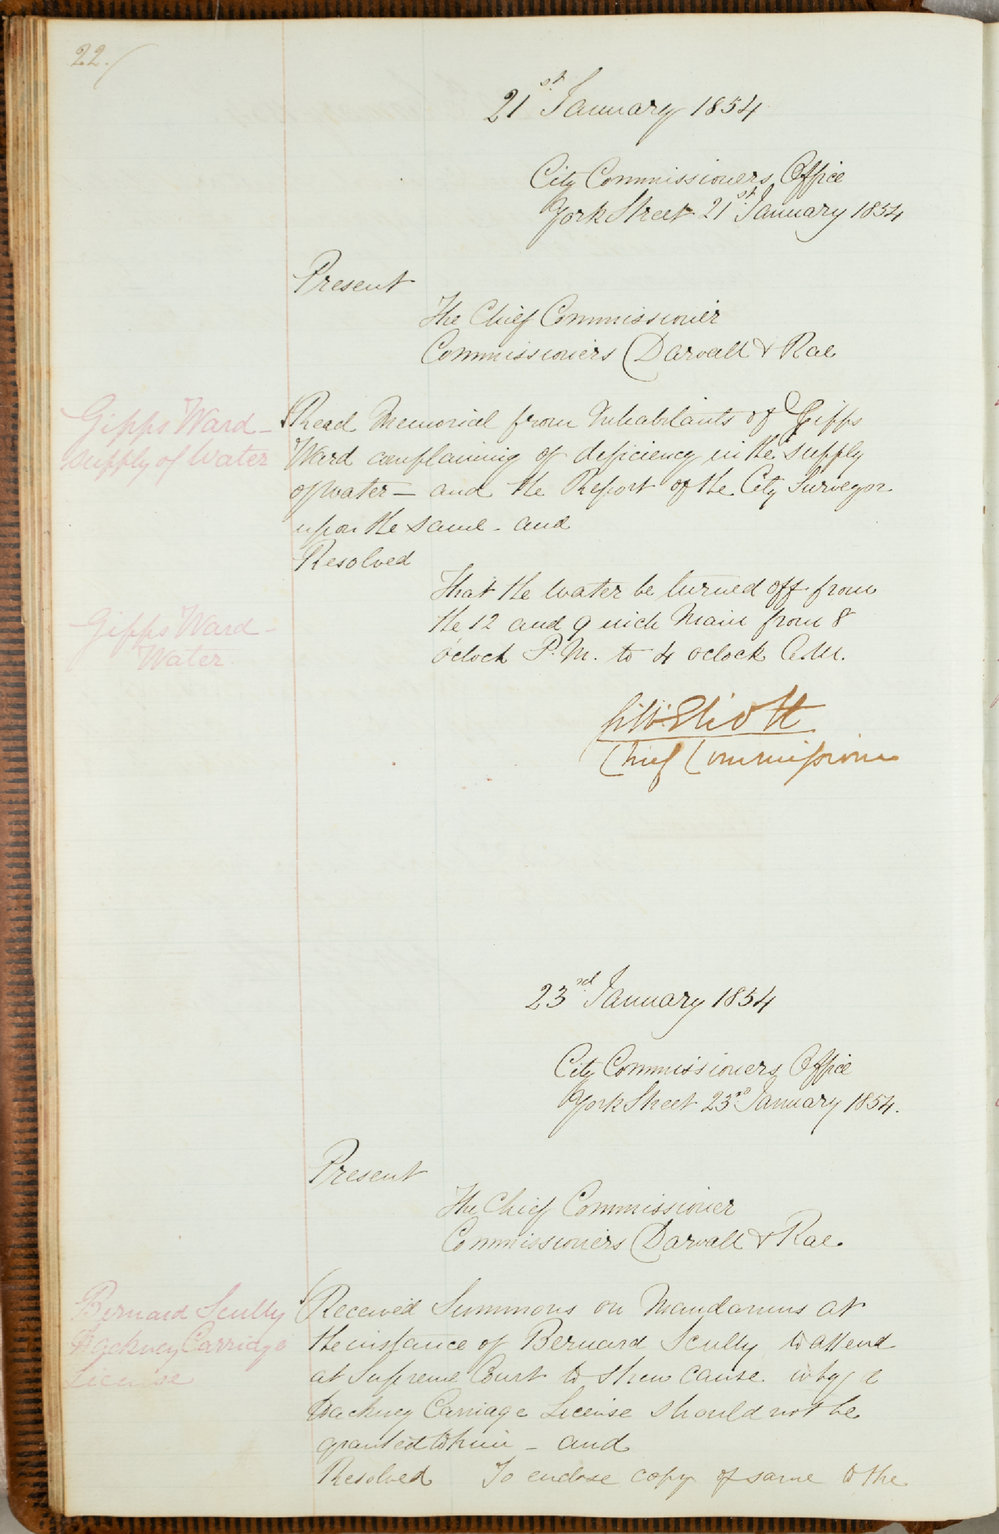 22.
21st January 1854
City Commissioners Office
York Street 21st January 1854
Present
The Chief Commissioner
Commissioners Darvall & Rae
Gipps Ward -
Supply of Water
Read Memorial from Inhabitants of Gipps
Ward complaining of deficiency in the supply
of water - and the Report of the City Surveyor
upon the same - and
Resolved
That the water be turned off from
the 12 and 9 inch Main from 8
oclock P.M. to 4 oclock A.M.
Gipps Ward -
Water.
Gilb. Eliott
Chief Commissioner
23rd January 1854
City Commissioners Office
York Street 23rd January 1854.
Present
The Chief Commissioner
Commissioners Darvall & Rae.
Bernard Scully
Hackney Carriage
License
Received Summons on Mandamus at
the instance of Bernard Scully to attend
at Supreme Court to shew cause why a
Hackney Carriage License should not be
granted to him - and
Resolved To enclose copy of same to the